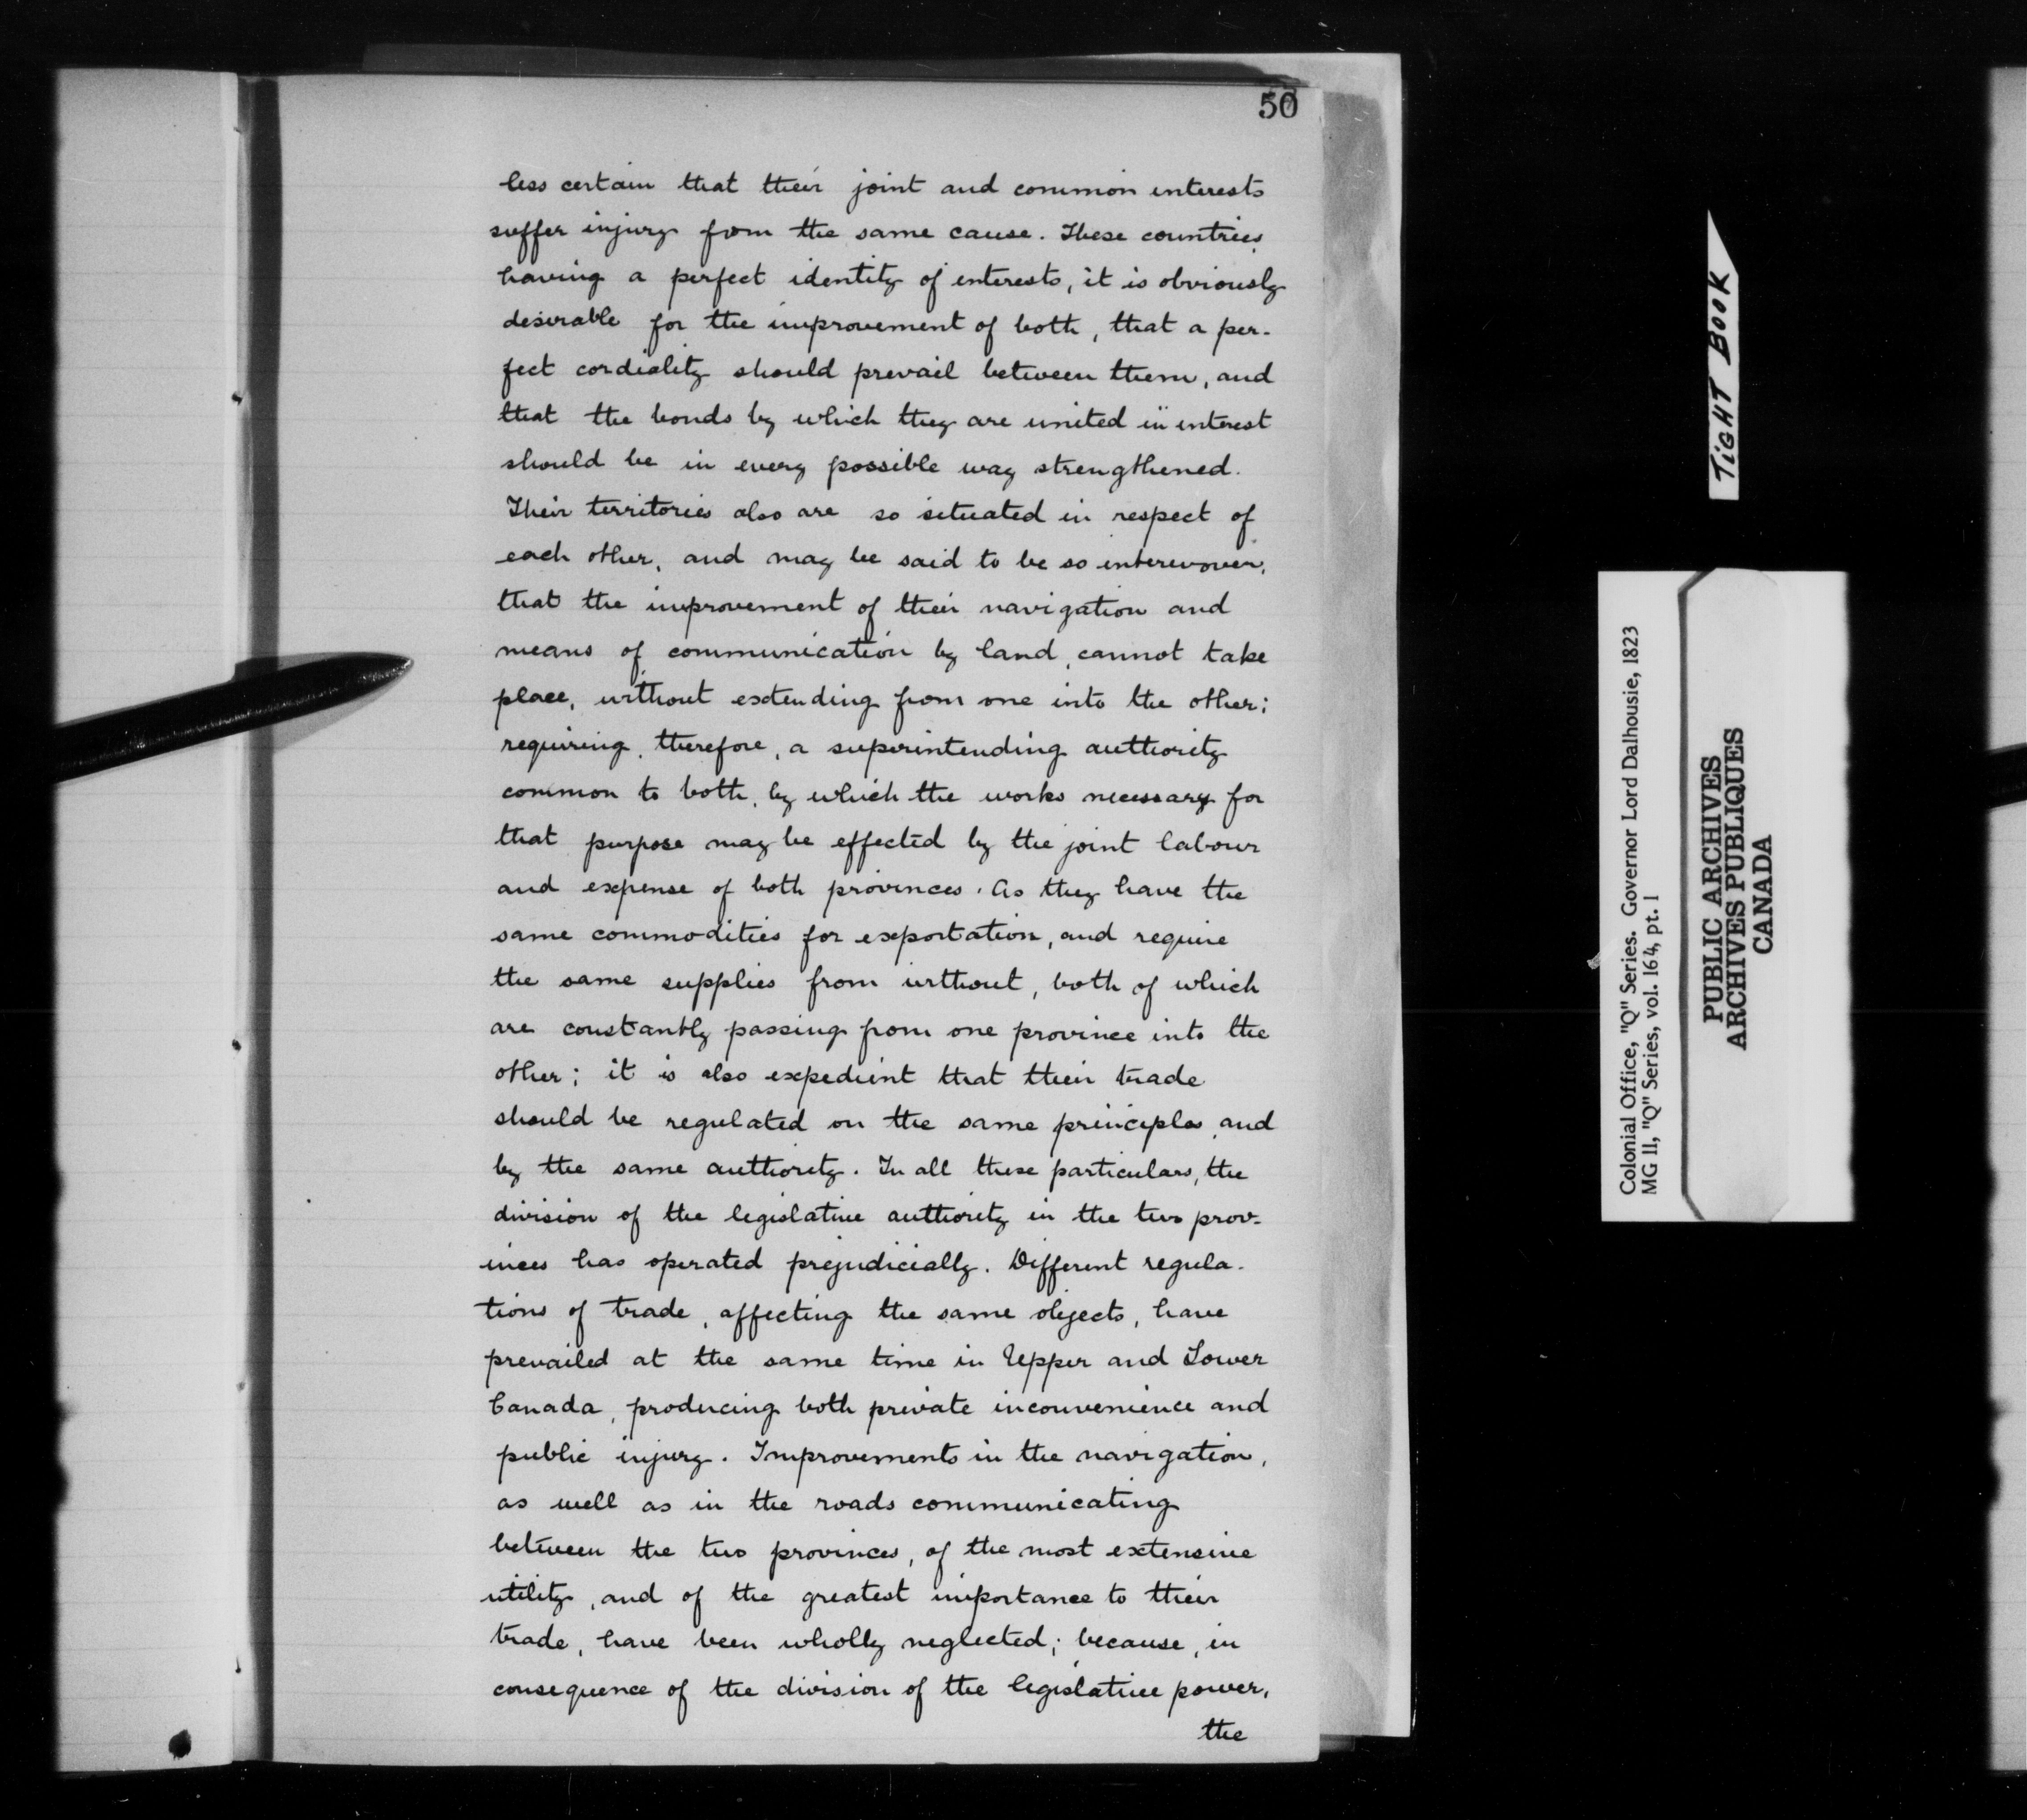 50
less certain that their joint and common interests
suffer injury from the same cause. These countries
having a perfect identity of interests, it is obviously
desirable for the improvement of both, that a per-
fect cordiality should prevail between them, and
that the bonds by which they are united in interest
should be in every possible way strengthened.
Their territories also are so situated in respect of
each other, and may be said to be so interwoven,
that the improvement of their navigation and
means of communication by land, cannot take
place, without extending from one into the other;
requiring, therefore, a superintending authority
common to both, by which the works necessary for
that purpose may be effected by the joint labour
and expense of both provinces. As they have the
same commodities for exportation, and require
the same supplies from without, both of which
are constantly passing from one province into the
other; it is also expedient that their trade
should be regulated on the same principles, and
by the same authority. In all these particulars, the
division of the legislative authority in the two prov-
inces has operated prejudicially. Different regula-
tions of trade, affecting the same objects, have
prevailed at the same time in Upper and Lower
Canada, producing both private inconvenience and
public injury. Improvements in the navigation,
as well as in the roads communicating
between the two provinces, of the most extensive
utility, and of the greatest importance to their
trade, have been wholly neglected; because, in
consequence of the division of the legislative power,
the
TIGHT BOOK
Colonial Office, "Q" Series. Governor Lord Dalhousie, 1823
MG 11, "Q" Series, vol. 164, pt. 1
PUBLIC ARCHIVES
ARCHIVES PUBLIQUES
CANADA